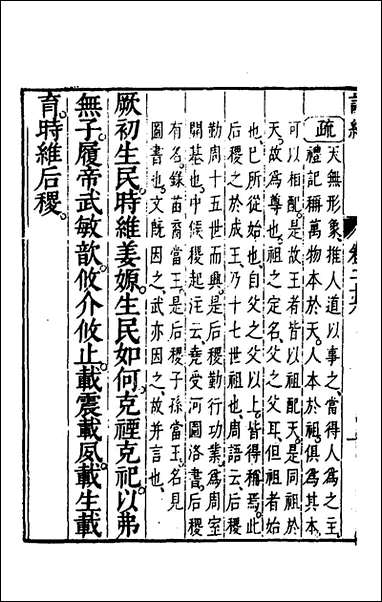 疏 天無形象、推人道以事之、當得人爲之主、
禮記稱萬物本於天、人本於祖、俱爲其本、
可以相配、是故王者皆以祖配天、是同祖於
天、故爲尊也、祖之定名、父之父耳、但祖者始
也、已所從始也、自父之父以上、皆得稱焉、此
后稷之於成王、乃十七世祖也、周語云、后稷
勤周十五世而興、是后稷勤行功業、爲周室
開基也、中候稷起注云、堯受河圖洛書、后稷
有名、錄苗裔當王、是后稷子孫當王、名見
圖書也、文既因之、武亦因之、故并言也、
厥初生民。時維姜嫄。生民如何。克禋克祀。以弗
無子。履帝武敏歆。攸介攸止。載震載夙。載生載
育。時維后稷。